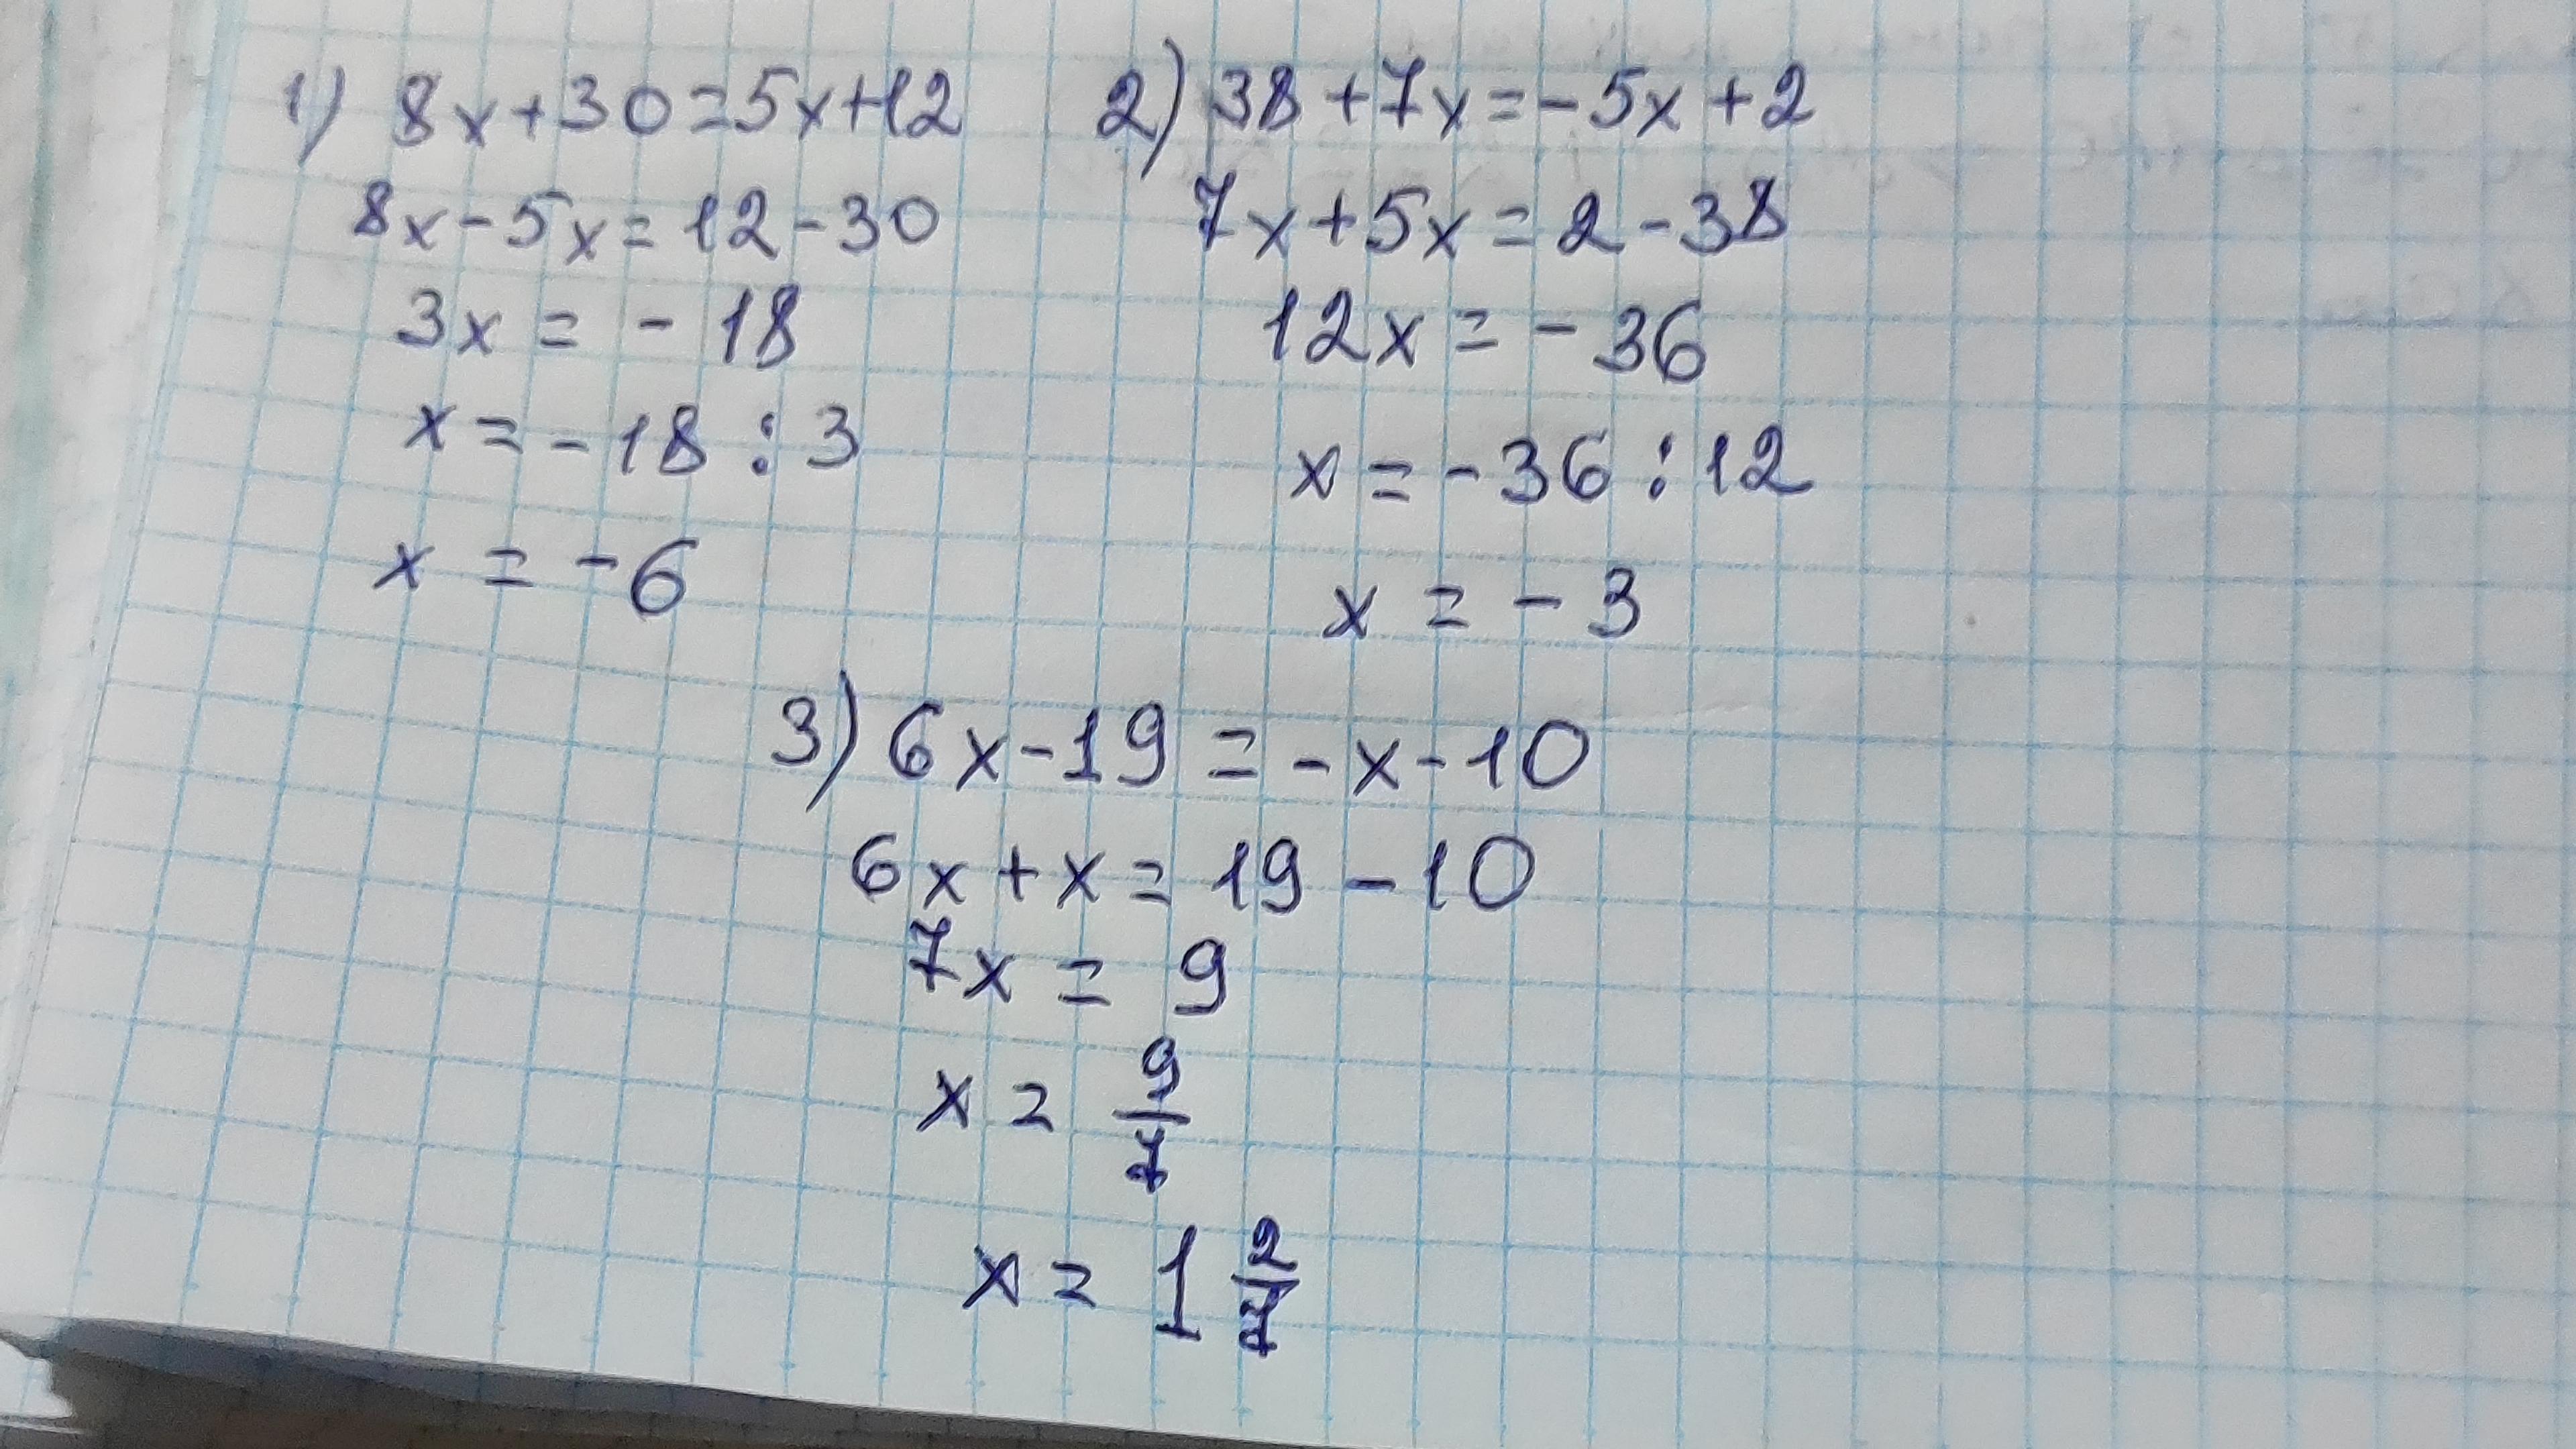 1) 8x+30=5x+12
8x-5x=12-30
3x = - 18
x = - 18 : 3
x = - 6
2) 38+7x=-5x+2
7x+5x=2-38
12x=-36
x=-36:12
x = - 3
3) 6x-19=-x-10
6x+x=19-10
7x = 9
x = 9/7
x = 1 2/7